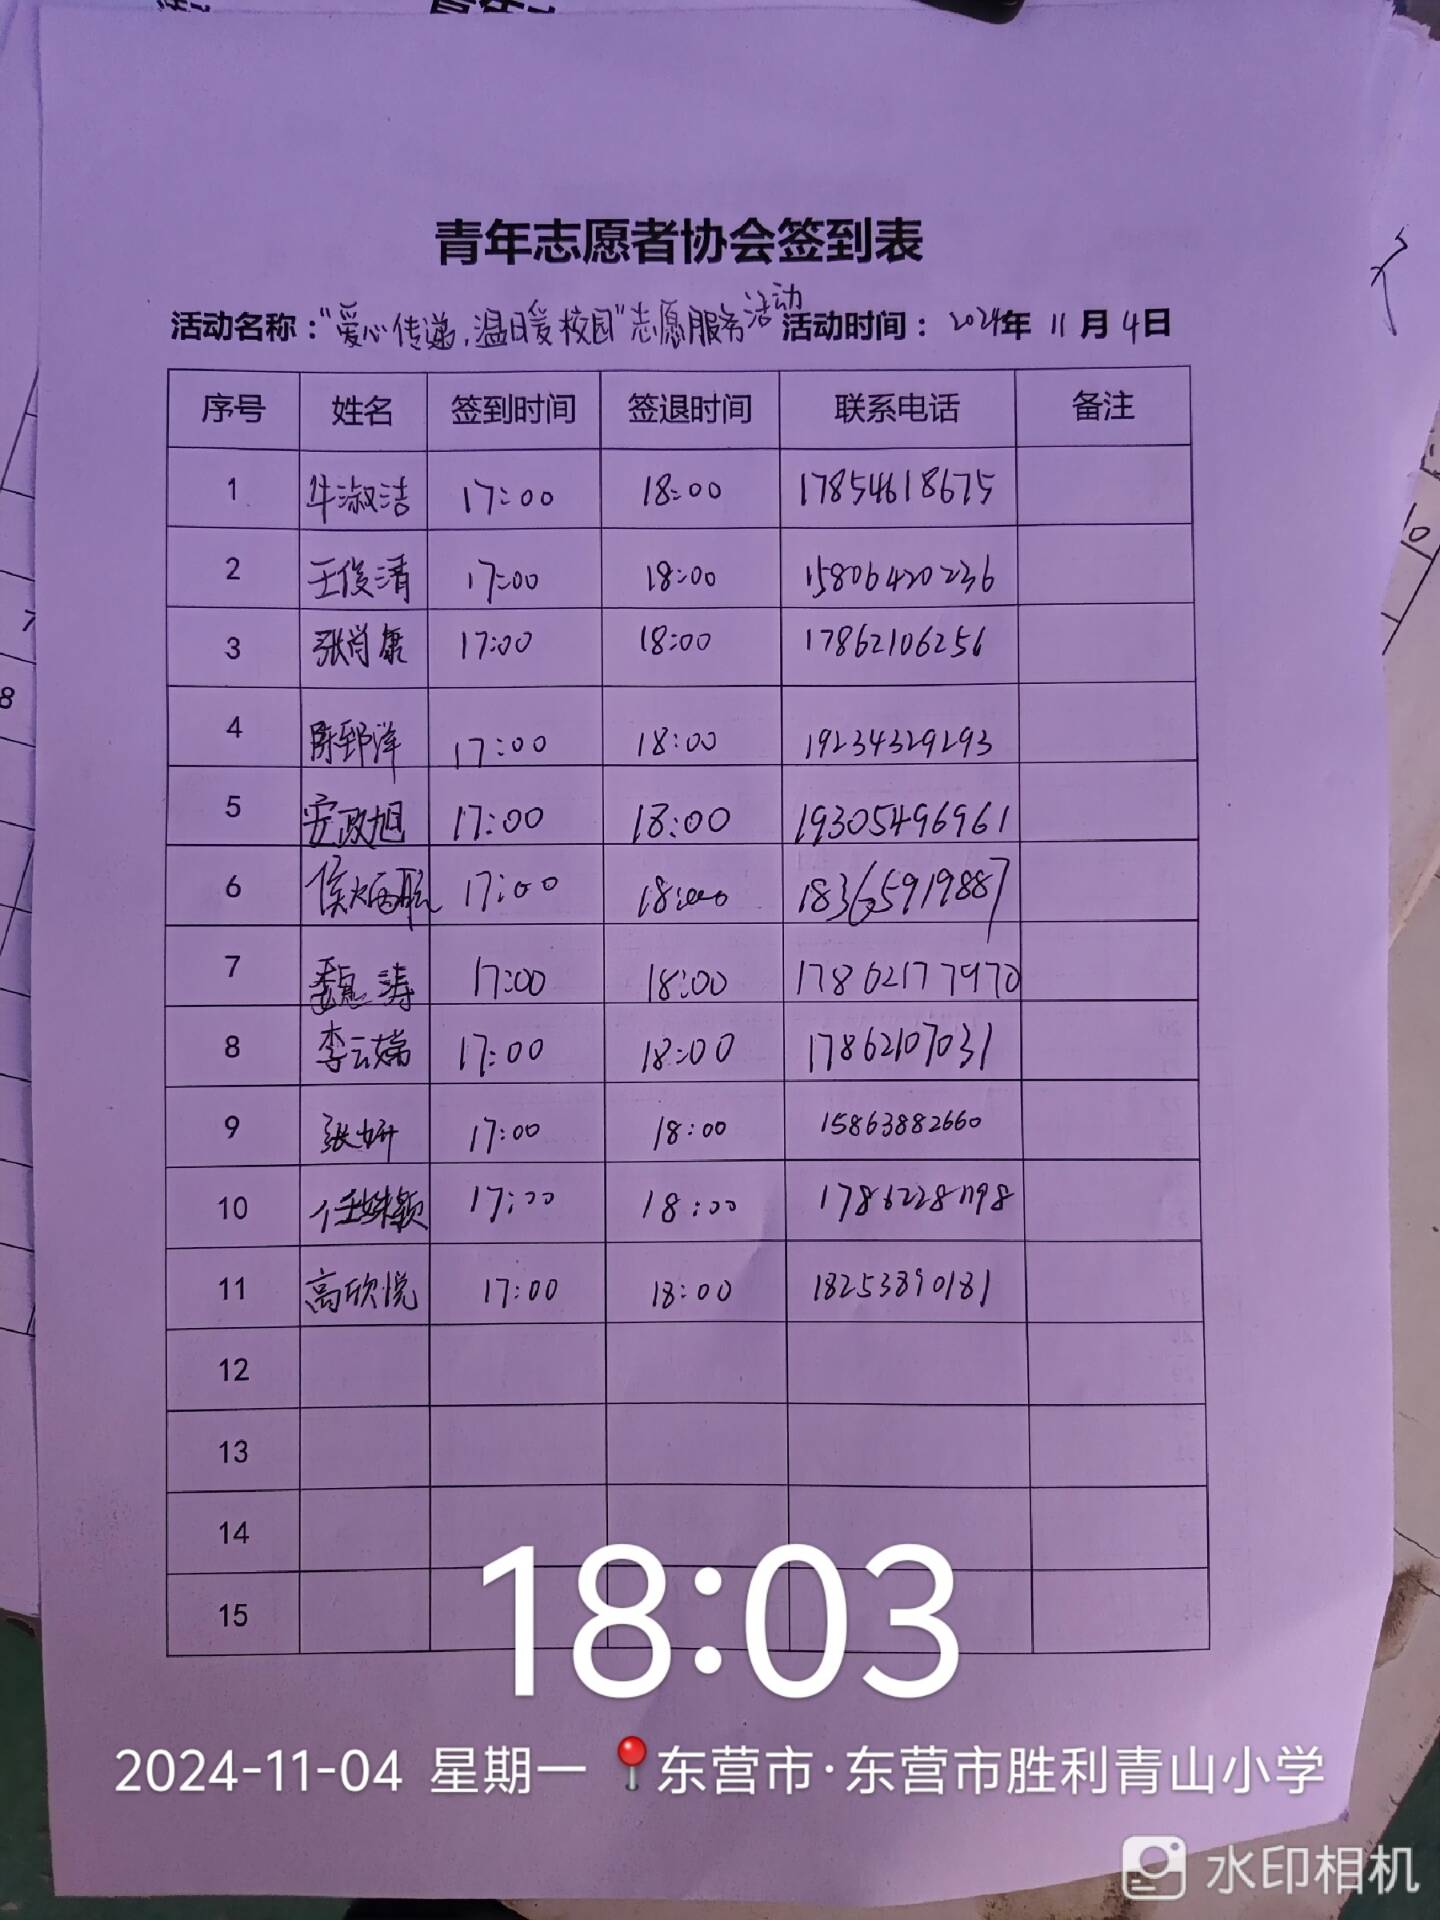 青年志愿者协会签到表
活动名称：“爱心传递,温暖校园”志愿服务活动 活动时间：2024年 11月 4日
序号 姓名 签到时间 签退时间 联系电话 备注
1 牛淑洁 17:00 18:00 17854618675
2 王俊清 17:00 18:00 15806420236
3 张肖康 17:00 18:00 17862106256
4 陈郅洋 17:00 18:00 19234329293
5 安政旭 17:00 18:00 19305496961
6 侯炳航 17:00 18:00 18365919887
7 魏涛 17:00 18:00 17862177970
8 李云端 17:00 18:00 17862107031
9 张妍 17:00 18:00 15863882660
10 任姝颖 17:00 18:00
11 高欣悦 17:00 18:00 18253890181
12
13
14
15
18:03
2024-11-04 星期一 东营市·东营市胜利青山小学
水印相机